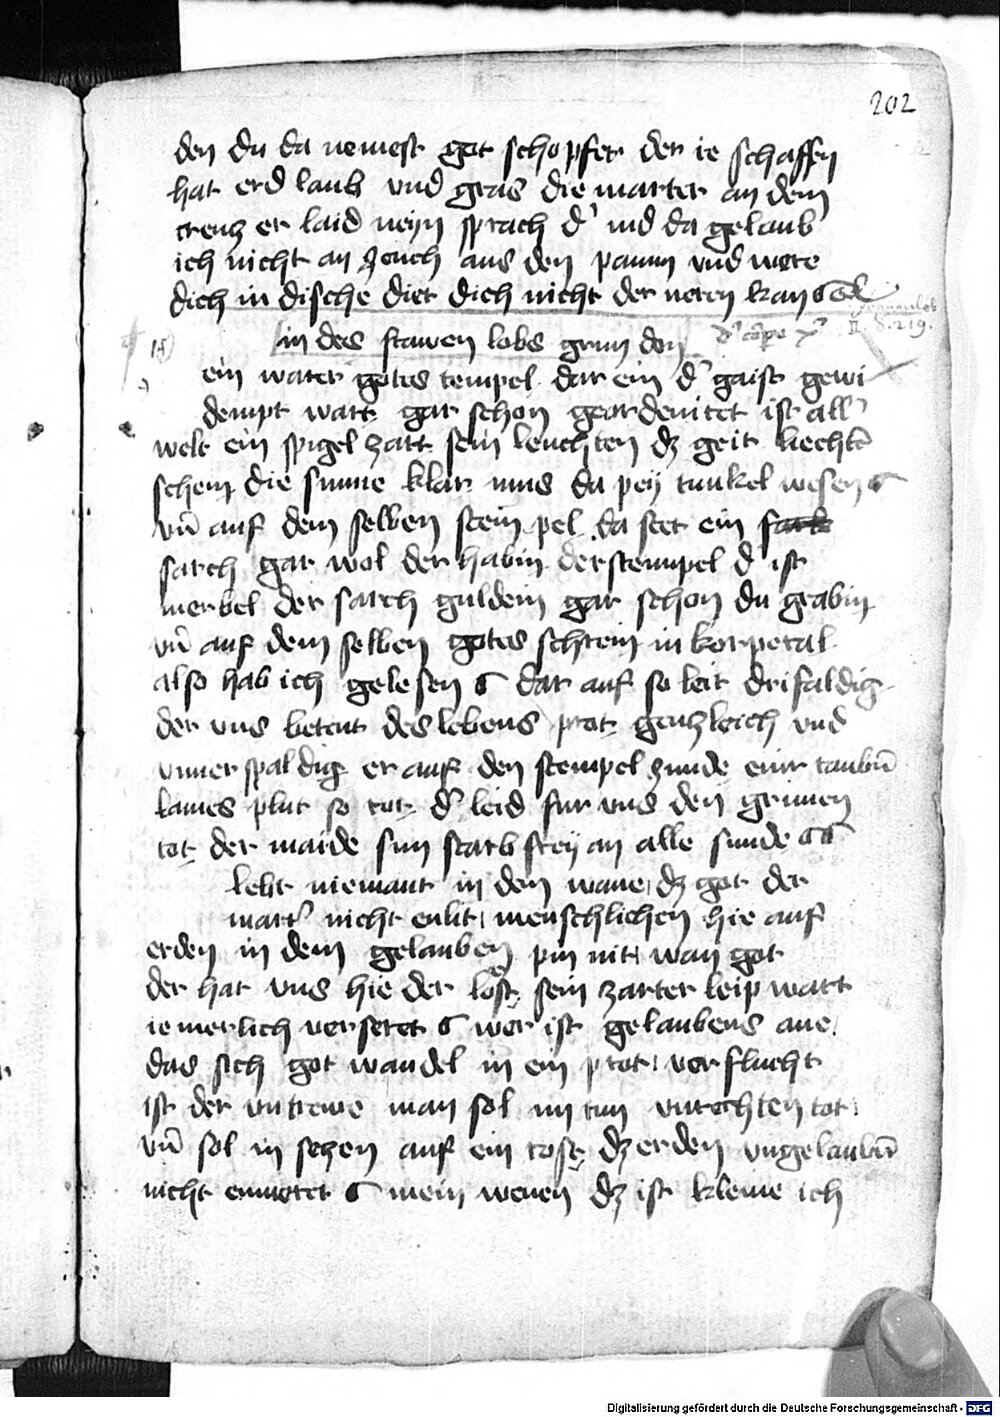 202
den du da nennest got schopfer der ie schaffen
hat erd laub und gras die marter an dem
creucz er laid neyn sprach d' iud da gelaub
ich nicht an euch aus den paum und
dich in dische diet dich nicht der neren kan
II S. 219.
in des frawen lobs grun don
ein warer gotes tempel dar ein d' gaist gewi
dempt wart gar schon geordenitet ist all'
welt ein spigel zart sein leuchten dz geit liechtē
schein die sunne klar mus da pey tunkel wesen
vn̄ auf dem selben stempel da stet ein
sarch gar wol der habin der stempel d' ist
merbel der sarch guldein gar schon du grabin
vn̄ auf dem selben gotes schrein in korperal
also hab ich gelesen dar auf so leit drifaldig
der uns beteut des lebens prot genczleich und
unuerspaldig er auf den stempel zunde einr taubn̄
lames plut so rot d' leid fur uns den grimen
tot der maide sun starb frey an alle sunde
lebt niemant in dem wane dz got der
mart' nicht enlit menschlichen hie auf
erden in dem gelauben pin nit wan got
der hat uns hie der lost sein zarter leip wart
iemerlich verseret wer ist gelaubens ane
das sich got wandel in ein prot verflucht
ist der untrewe man sol im tun unrechten tot
vn̄ sol in seczen auf ein rost dz erden ungelaubn̄
nicht enweret mein wenen dz ist kleine ich
Digitalisierung gefördert durch die Deutsche Forschungsgemeinschaft - DFG